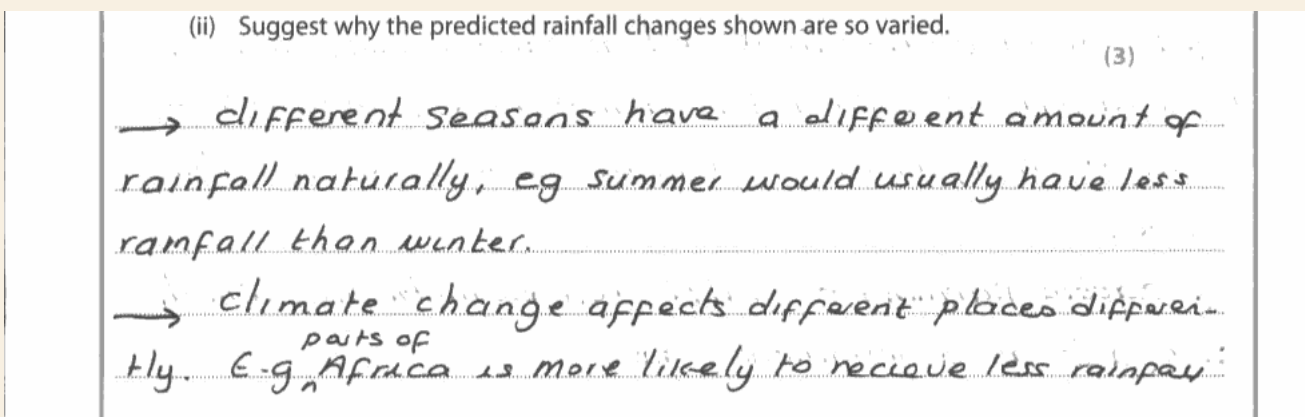 (ii) Suggest why the predicted rainfall changes shown are so varied.
(3)
→ different seasons have a different amount of
rainfall naturally, eg summer would usually have less
rainfall than winter.
→ climate change affects different places differen-
parts of
tly. E.g Africa is more likely to recieve less rainfall